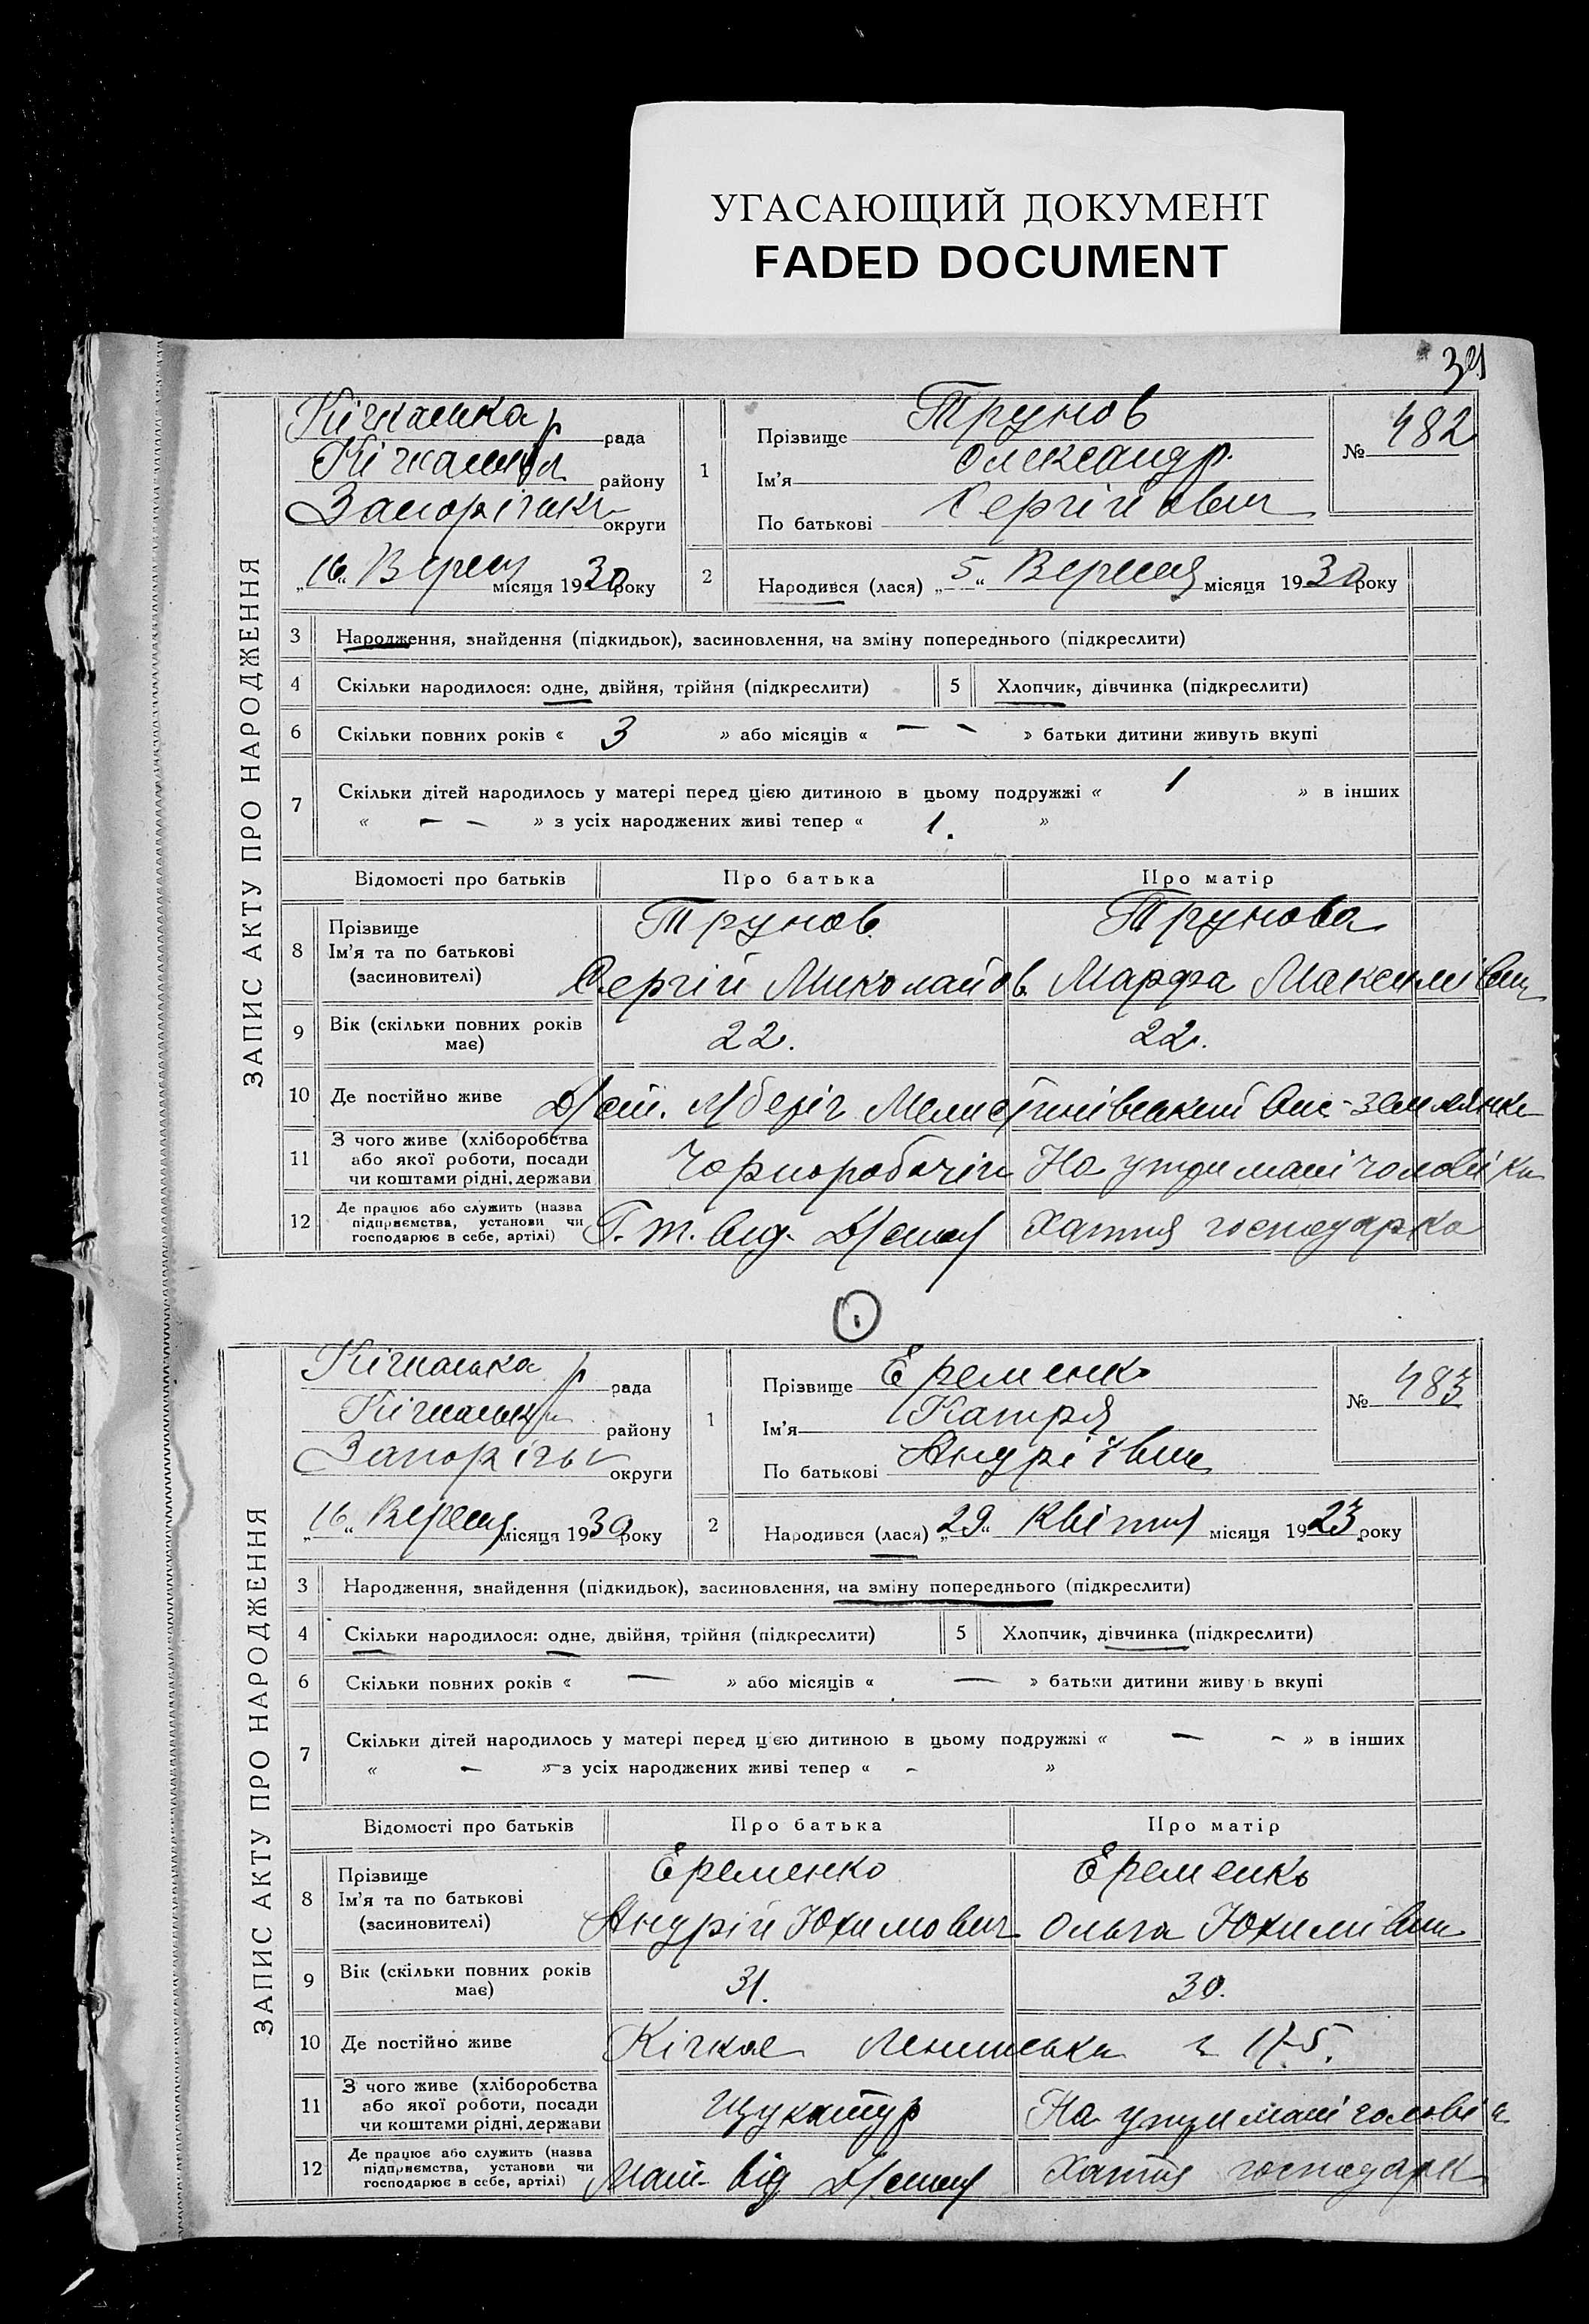 УГАСАЮЩИЙ ДОКУМЕНТ
FADED DOCUMENT
34
ЗАПИС АКТУ ПРО НАРОДЖЕННЯ
Кічкаська р рада
Кічкаськ району
Запоріжк округи
„16“ Вересн місяця 1930 року
1 Прізвище Трунов
Ім'я Олександр.
По батькові Сергійович
№ 482
2 Народився (лася) „5“ Вересня місяця 1930 року
3 Народження, знайдення (підкидьок), засиновлення, на зміну попереднього (підкреслити)
4 Скільки народилося: одне, двійня, трійня (підкреслити) 5 Хлопчик, дівчинка (підкреслити)
6 Скільки повних років « 3 » або місяців « — — » батьки дитини живуть вкупі
7 Скільки дітей народилось у матері перед цією дитиною в цьому подружжі « 1 » в інших
« — — » з усіх народжених живі тепер « 1. »
Відомості про батьків Про батька Про матір
8 Прізвище Ім'я та по батькові (засиновителі) Трунов Трунова
Сергій Миколайов. Марфа Максимівн
9 Вік (скільки повних років має) 22. 22.
10 Де постійно живе землянка
11 З чого живе (хліборобства або якої роботи, посади чи коштами рідні, держави Чорноробочій На утримані чоловіка
12 Де працює або служить (назва підприємства, установи чи господарює в себе, артілі) Г. т. від. Хатня господарка
ЗАПИС АКТУ ПРО НАРОДЖЕННЯ
Кічкаська р рада
Кічкаськ району
Запорізьк округи
„16“ Вересня місяця 1930 року
1 Прізвище Єременко
Ім'я Катря
По батькові Андріївна
№ 483
2 Народився (лася) „29“ Квітня місяця 1923 року
3 Народження, знайдення (підкидьок), засиновлення, на зміну попереднього (підкреслити)
4 Скільки народилося: одне, двійня, трійня (підкреслити) 5 Хлопчик, дівчинка (підкреслити)
6 Скільки повних років « — » або місяців « — » батьки дитини живуть вкупі
7 Скільки дітей народилось у матері перед цією дитиною в цьому подружжі « — - » в інших
« - » з усіх народжених живі тепер « - »
Відомості про батьків Про батька Про матір
8 Прізвище Ім'я та по батькові (засиновителі) Єременко Єременко
Андрій Юхимович Ольга Юхимівна
9 Вік (скільки повних років має) 31. 30.
10 Де постійно живе Кічкас Ленінська
11 З чого живе (хліборобства або якої роботи, посади чи коштами рідні, держави Щукатур На утримані чоловік
12 Де працює або служить (назва підприємства, установи чи господарює в себе, артілі) від Хатня господарк